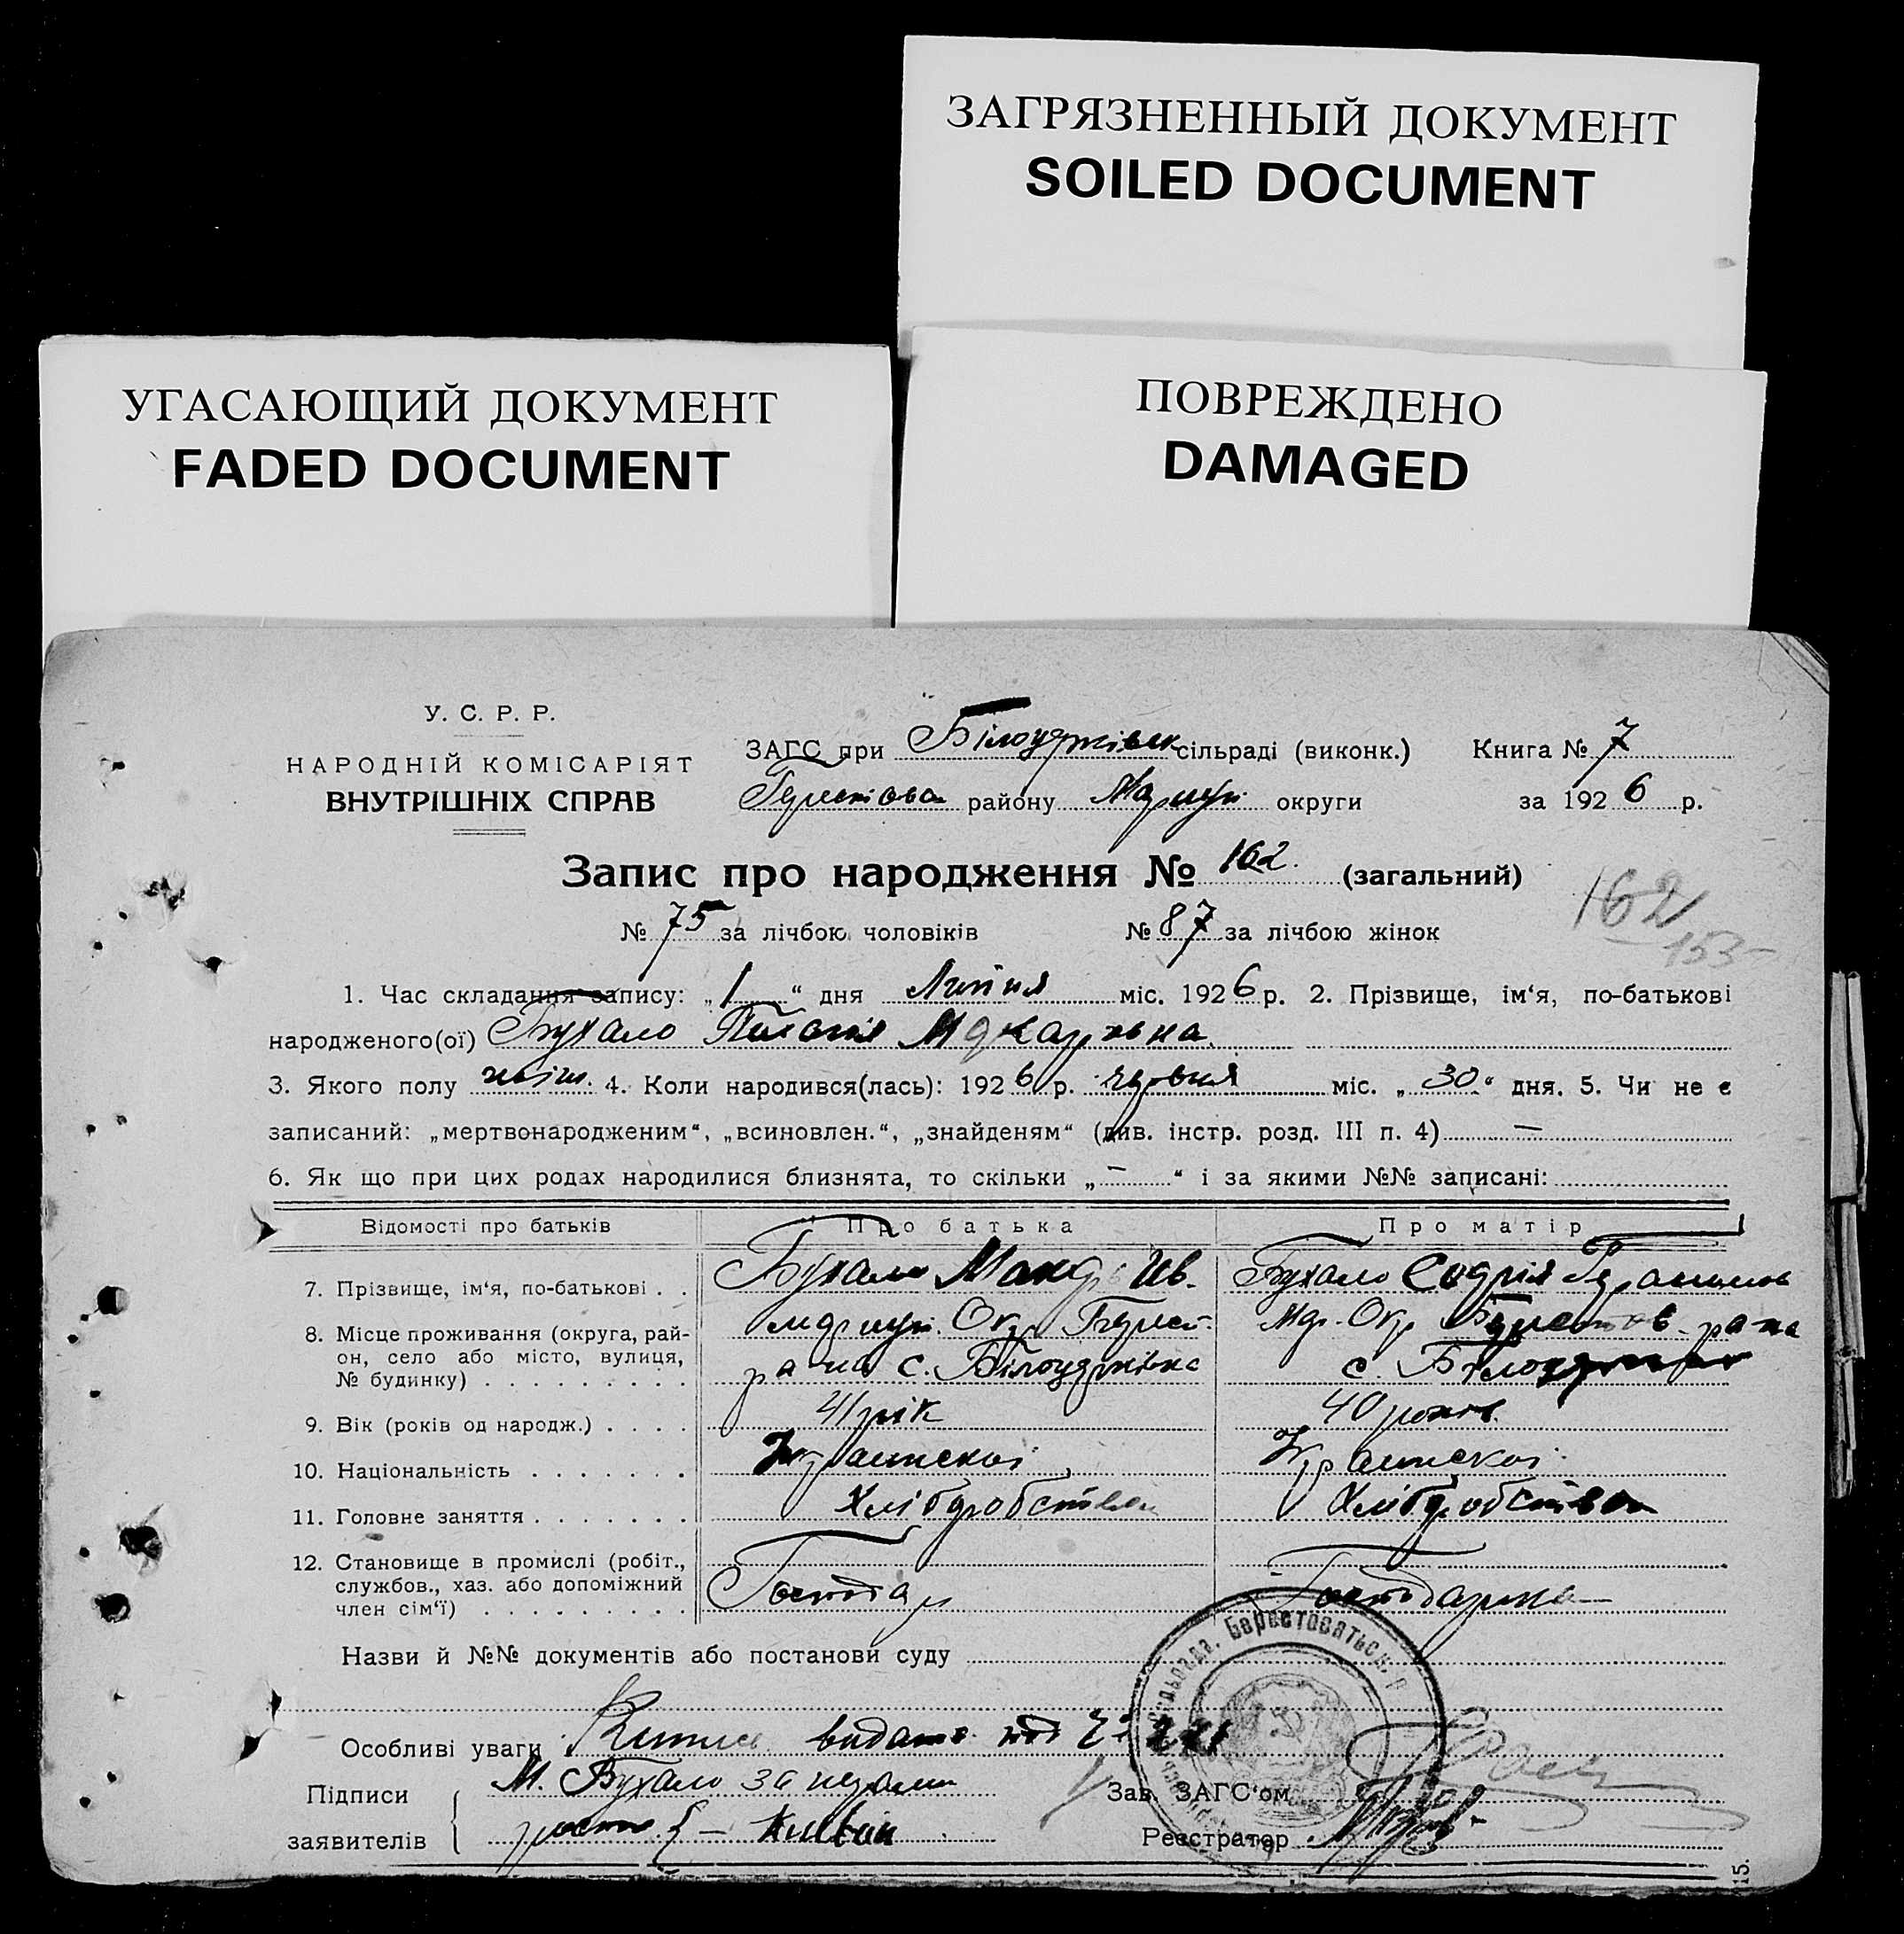 ЗАГРЯЗНЕННЫЙ ДОКУМЕНТ
SOILED DOCUMENT
УГАСАЮЩИЙ ДОКУМЕНТ
FADED DOCUMENT
ПОВРЕЖДЕНО
DAMAGED
У. С. Р. Р.
НАРОДНІЙ КОМІСАРІЯТ
ВНУТРІШНІХ СПРАВ
ЗАГС при Білоцерківск сільраді (виконк.) Книга № 7
району Маріуп округи за 1926 р.
Запис про народження № 162. (загальний)
162
№ 75 за лічбою чоловіків № 87 за лічбою жінок
153
1. Час складання запису: „1“ дня Липня міс. 1926 р. 2. Прізвище, ім‘я, по-батькові
народженого(ої) Бухало Макаровна.
3. Якого полу жіш. 4. Коли народився(лась): 1926 р. червня міс. „30“ дня. 5. Чи не є
записаний: „мертвонародженим“, „всиновлен.“, „знайденям“ (див. інстр. розд. III п. 4) —
6. Як що при цих родах народилися близнята, то скільки „—“ і за якими №№ записані:
Відомості про батьків Про батька Про матір
7. Прізвище, ім‘я, по-батькові . . Бухало Макар Ив. Бухало
8. Місце проживання (округа, рай-
он, село або місто, вулиця,
№ будинку) . . . . . . . . .
Маріуп. Окр Берест. Мар. Окр Берестов. р а на
р а на с. Білоцерківка с.
9. Вік (років од народж.) . . . . 41 рік 40 років.
10. Національність . . . . . . . Украинскоі Украинскоі
11. Головне заняття . . . . . . . Хліборобство Хліборобство
12. Становище в промислі (робіт.,
службов., хаз. або допоміжний
член сім‘ї) . . . . . . . . .
Господар Господарка
Назви й №№ документів або постанови суду
Сільрада. Берестоватськ. р
Особливі уваги видано под
Підписи
заявителів
М. Бухало за
Зав. ЗАГС‘ом
Реєстратор
15.